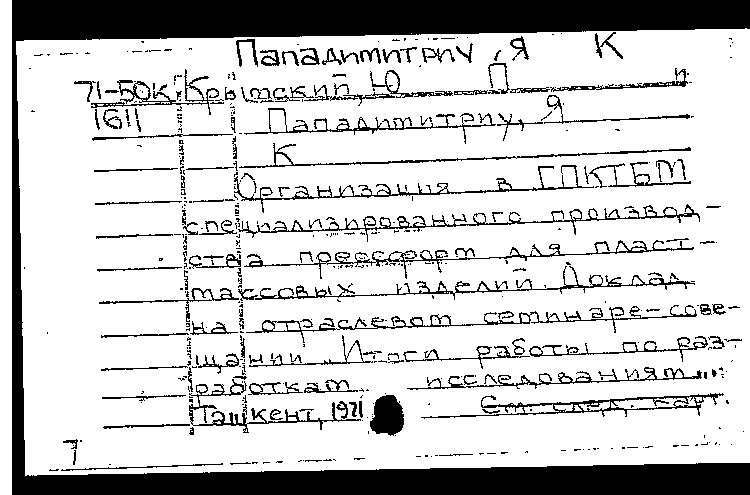 Пападимитриу, Я К
71-50К Крымский, Ю П и
1611 Пападимитриу, Я
К
Организация в ГПКТБМ
специализированного производ-
ства прессформ для пласт-
массовых изделий. Доклад
на отраслевом семинаре-сове-
щании "Итоги работы по раз-
работкам исследованиям..."
Ташкент, 1971 См. след. карт.
7